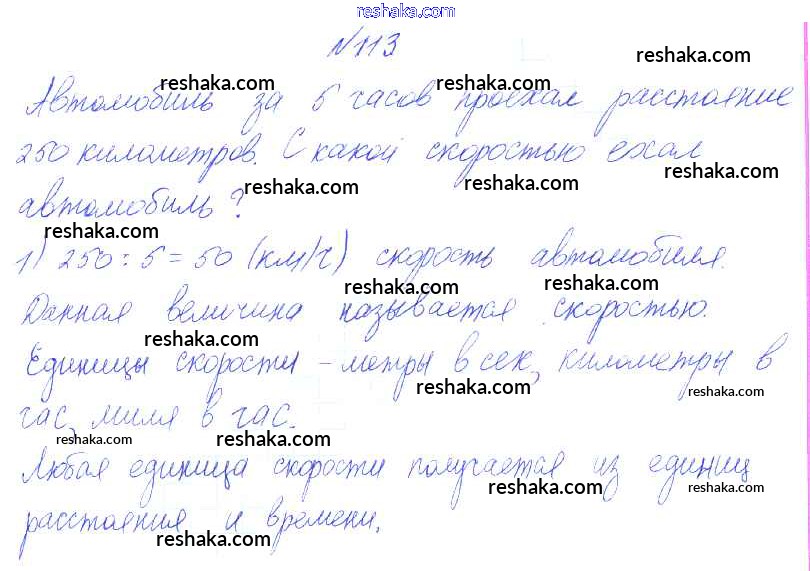 reshaka.com
№113
reshaka.com
reshaka.com reshaka.com
Автомобиль за 5 часов проехал расстояние
reshaka.com
250 километров. С какой скоростью ехал
reshaka.com reshaka.com
автомобиль?
1) 250 : 5 = 50 (км/ч) скорость автомобиля.
reshaka.com reshaka.com
Данная величина называется скоростью.
reshaka.com reshaka.com
Единицы скорости – метры в сек, километры в
reshaka.com reshaka.com
час, миля в час.
reshaka.com reshaka.com reshaka.com
Любая единица скорости получается из единиц
reshaka.com reshaka.com
расстояния и времени.
reshaka.com